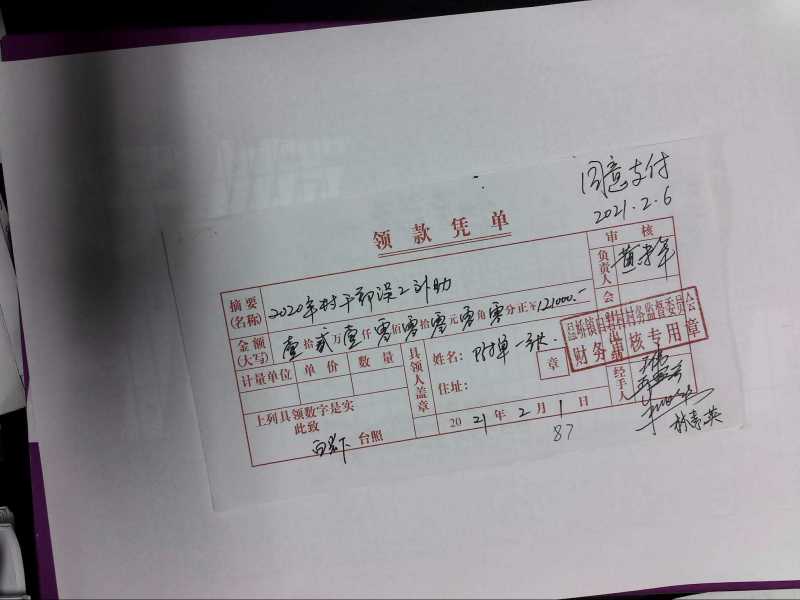 同意支付
2021.2.6
领款凭单
审核
摘要
(名称)
2020年村干部误工补助
负责人
金额
(大写)
壹拾贰万壹仟零佰零拾零元零角零分正￥121000.-
会
计量单位 单价 数量
具领人盖章
姓名:附单一张.
住址:
章
村务监督委员会
财务审核专用章
上列具领数字是实
此致
台照
2021年2月1日
经手人
林素英
87